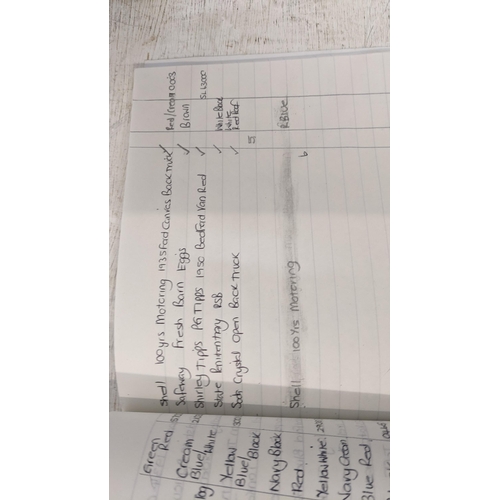 Shell 100yrs Motoring 1935 Ford Canvas Back Truck ✓ Red/Cream
Safeway Fresh Barn Eggs ✓ Brown
Shirley Tipps PG Tipps 1950 Bedford Van Red ✓ SL13000
State Penitentiary RSB ✓ White Back
Soda Crystal Open Back Truck ✓ White Red Roof
Shell 100 yrs Motoring 6 R Blue
Green
Red
Cream
Blue/
White
Yellow
Blue/
Black
Navy Black
Red
Yellow White
Navy Cream
Blue Red